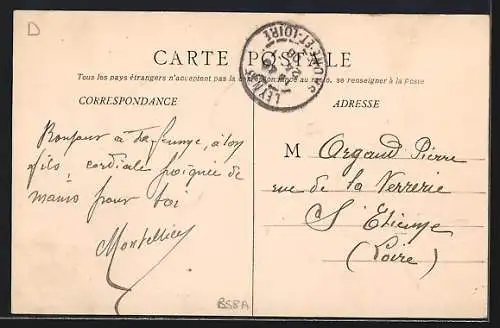 D
CARTE POSTALE
Tous les pays étrangers n'acceptent pas la correspondance au recto, se renseigner à la Poste
CORRESPONDANCE
ADRESSE
LEYNES
SAONE-ET-LOIRE
Bonjour à ta femme, à ton
fils, cordiale poignée de
mains pour toi
M Argaud Pierre
rue de la Verrerie
St Etienne
(Loire)
BSBA